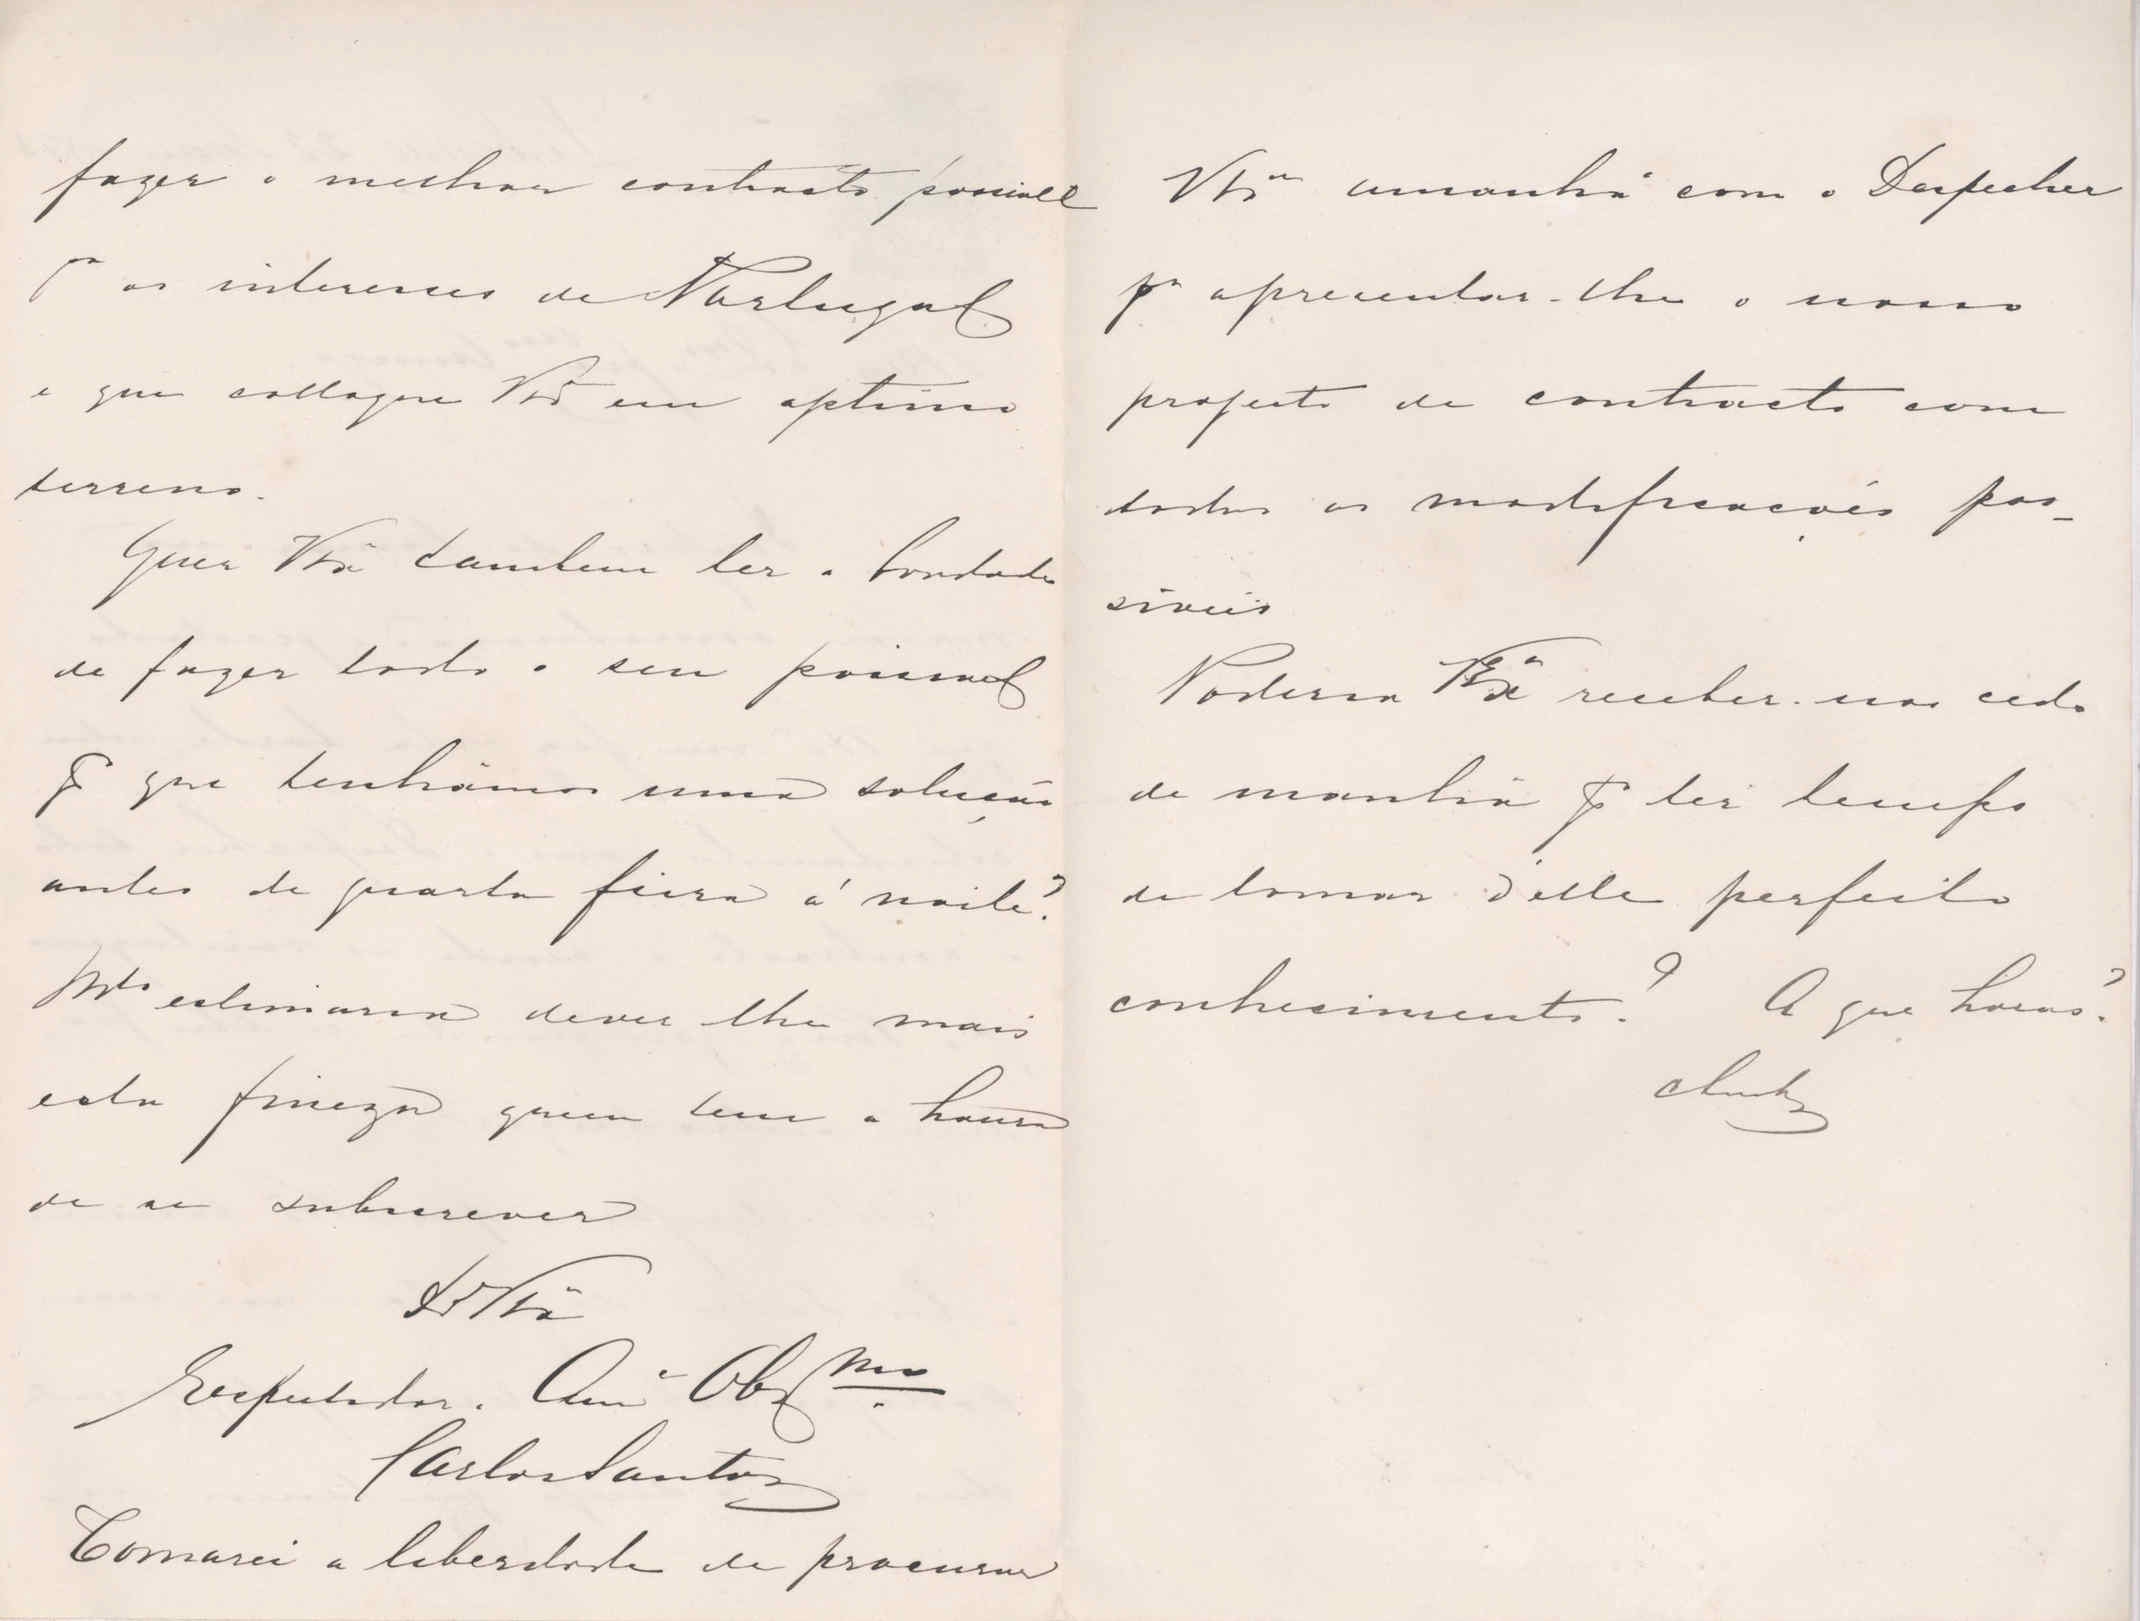 fazer o melhor contracto possivel
pª os interesses de Portugal
e que colloque VExª em optimo
terreno.
Quer VExª tambem ter a bondade
de fazer todo o seu possivel
pª que tenhâmos uma solução
antes de quarta feira á noite?
Mto estimaria dever lhe mais
esta fineza quem tem a honra
de se subscrever
De VExª
Respeitador. Amº Obgmo
Carlos Santos
Tomarei a liberdade de procurar
VExª amanhã com o Despecher
pª apresentar-lhe o nosso
projecto de contracto com
todas as modificações pos-
siveis
Poderia VExª receber-nos cedo
de manhã pª ter tempo
de tomar d'elle perfeito
conhecimento? A que horas?